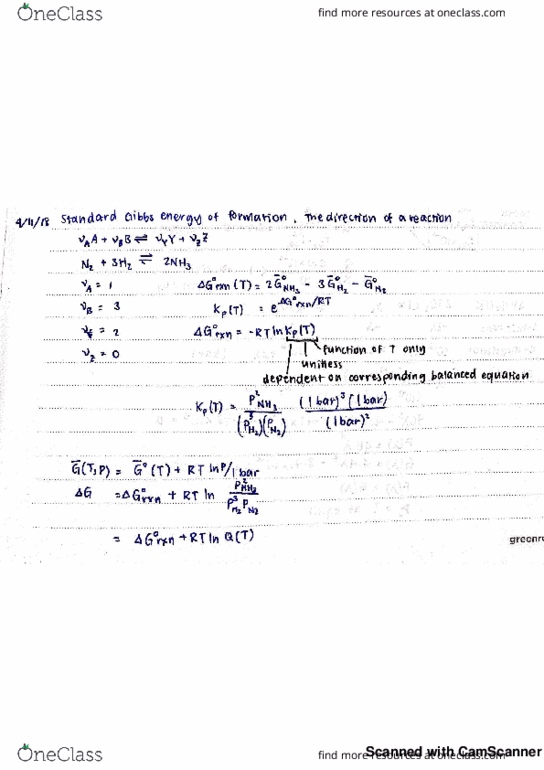 OneClass
find more resources at oneclass.com
4/11/18 Standard Gibbs energy of formation, The direction of a reaction
νₐA + ν_BB ⇌ ν_YY + ν_ZZ
N₂ + 3H₂ ⇌ 2NH₃
ν_A = 1 ΔG°rxn (T) = 2Ḡ°NH₃ - 3Ḡ°H₂ - Ḡ°N₂
ν_B = 3 Kp(T) = e^ΔG°rxn/RT
ν_Y = 2 ΔG°rxn = -RT ln Kp(T)
ν_Z = 0 function of T only
unitless
dependent on corresponding balanced equation
Kp(T) = P²NH₃ / (P³H₂)(PN₂) (1 bar)³(1 bar) / (1 bar)²
Ḡ(T,P) = Ḡ°(T) + RT ln P/1 bar
ΔG = ΔG°rxn + RT ln P²NH₃ / P³H₂ PN₂
= ΔG°rxn + RT ln Q(T)
OneClass
find more resources at oneclass.com
Scanned with CamScanner